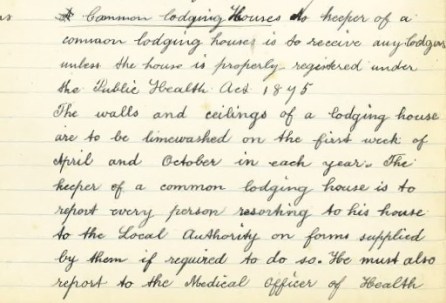 Common lodging Houses No keeper of a
common lodging house is to receive any lodgers
unless the house is properly registered under
the Public Health Act 1875
The walls and ceilings of a lodging house
are to be limewashed on the first week of
April and October in each year. The
keeper of a common lodging house is to
report every person resorting to his house
to the Local Authority on forms supplied
by them if required to do so. He must also
report to the Medical Officer of Health